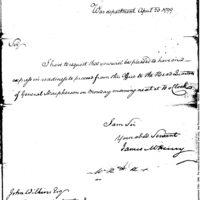 War department April 5th 1799
Sir,
I have to request that you will be pleased to have one
express in readiness to proceed from this Office to the Head Quarters
of General Macpherson on Monday morning next at 10 oClock
I am Sir
Your obed Servant
James McHenry
John Wilkins Esq